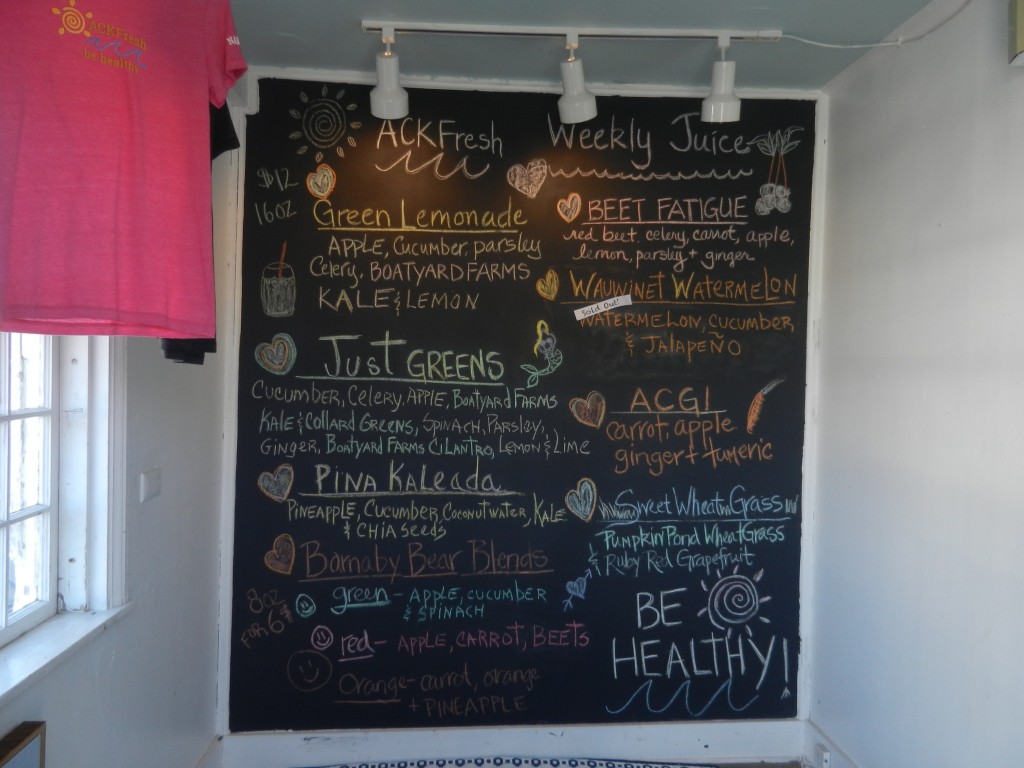 ACKFresh
be healthy
ACKFresh Weekly Juice
$12
16oz
Green Lemonade
APPLE, Cucumber, parsley
Celery, BOATYARD FARMS
KALE & LEMON
Just GREENS
CUCUMBER, Celery, APPLE, BOATYARD FARMS
KALE & COLLARD GREENS, SPINACH, PARSLEY,
GINGER, BOATYARD FARMS CILANTRO, LEMON & LIME
PINA KALEADA
PINEAPPLE, CUCUMBER, Coconut water, KALE
& CHIA Seeds
Barnaby Bear Blends
8oz
FOR 6
green - APPLE, CUCUMBER
& SPINACH
red - APPLE, CARROT, BEETS
Orange - carrot, orange
+ PINEAPPLE
BEET FATIGUE
red beet, celery, carrot, apple,
lemon, parsly + ginger
WAUWINET WATERMELON
Sold Out!
WATERMELON, CUCUMBER
& JALAPEÑO
ACG!
carrot, apple
ginger + tumeric
Sweet Wheat Grass
PUMPKIN POND WHEATGRASS
& Ruby Red Grapefruit
BE
HEALTHY!